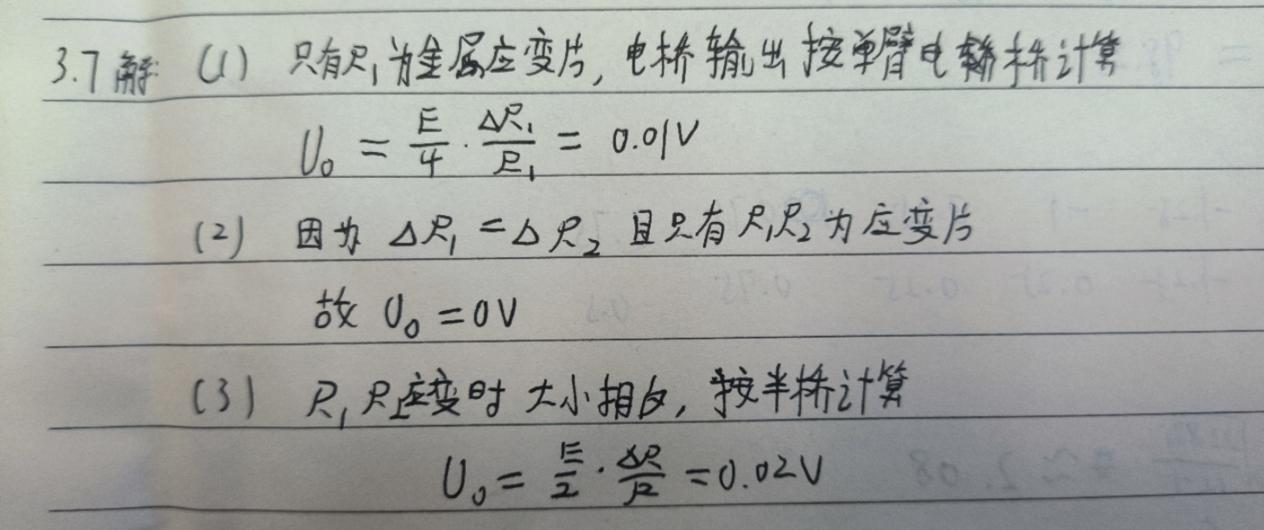 3.7 解: (1) 只有R₁为金属应变片, 电桥输出按单臂电桥计算
U₀ = E/4 · ΔR₁/R₁ = 0.01V
(2) 因为 ΔR₁ = ΔR₂ 且只有 R₁R₂ 为应变片
故 U₀ = 0V
(3) R₁ R₂应变时 大小相反, 按半桥计算
U₀ = E/2 · ΔR/R = 0.02V